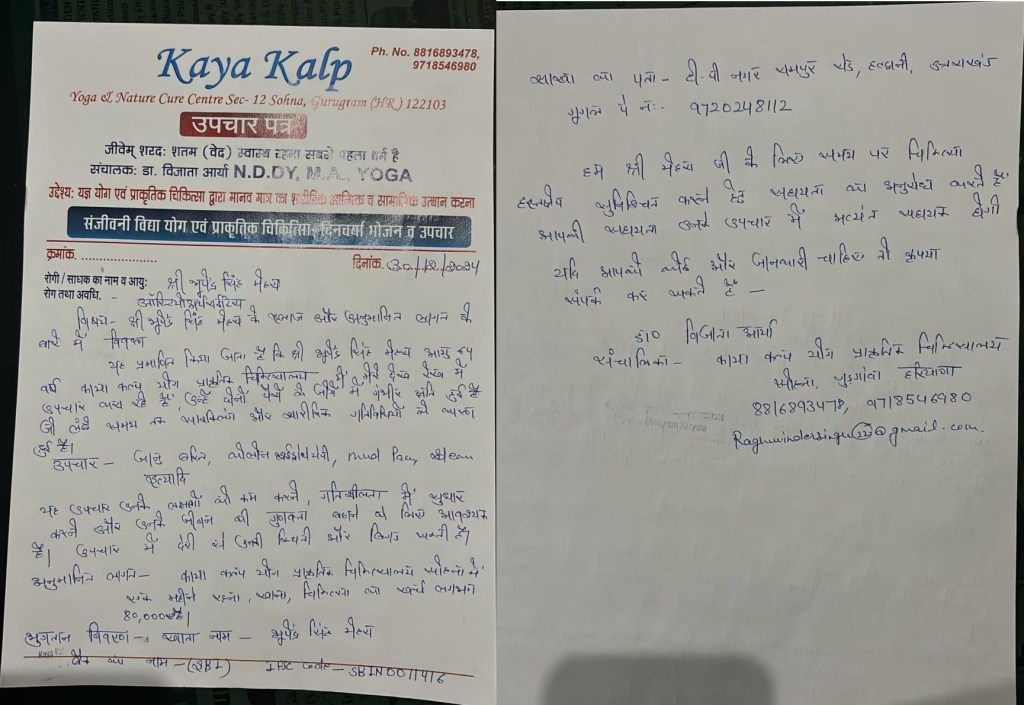 Kaya Kalp
Ph. No. 8816893478,
9718546980
Yoga & Nature Cure Centre Sec- 12 Sohna, Gurugram (HR) 122103
उपचार पत्र
जीवेम् शरदः शतम (वेद) स्वास्थ रहना सबसे पहला धर्म है
संचालक: डा. विजाता आर्या N.D.DY, M.A., YOGA
उद्देश्य: यज्ञ योग एवं प्राकृतिक चिकित्सा द्वारा मानव मात्र का शारीरिक आत्मिक व सामाजिक उत्थान करना
संजीवनी विद्या योग एवं प्राकृतिक चिकित्सा, दिनचर्या भोजन व उपचार
क्रमांक. ......................
दिनांक. 30/12/2024
रोगी / साधक का नाम व आयु: श्री भूपेंद्र सिंह मेहरा
रोग तथा अवधि. - ऑस्टियोआर्थराइटिस
विषय- श्री भूपेंद्र सिंह मेहरा के इलाज और अनुमानित लागत के
बारे में विवरण
यह प्रमाणित किया जाता है कि श्री भूपेंद्र सिंह मेहरा आयु 64
वर्ष काया कल्प योग प्राकृतिक चिकित्सालय में मेरी देख रेख में
उपचार करा रहे हैं, उन्हें दोनों पैरों के जोड़ों में गंभीर क्षति हुई है
जो लंबे समय तक साइकिलिंग और शारीरिक गतिविधियों के कारण
हुई है।
उपचार - जानु बस्ति, mud Pack, Steam
इत्यादि
यह उपचार उनके लक्षणों को कम करने, गतिशीलता में सुधार
करने और उनके जीवन की गुणवत्ता बढ़ाने के लिए आवश्यक
है। उपचार में देरी से उनकी स्थिती और बिगड़ सकती है।
अनुमानित लागत- काया कल्प योग प्राकृतिक चिकित्सालय सोहना में
एक महीने रहना, खाना, चिकित्सा का खर्च लगभग
80,000 है।
भुगतान विवरण - खाता नाम - भूपेंद्र सिंह मेहरा
बैंक का नाम - (SBI) IFSC Code - SBIN0011416
शाखा का पता - टी-पी नगर रामपुर रोड, हल्द्वानी, उत्तराखंड
गूगल पे नं:- 9720248112
हम श्री मेहरा जी के लिए समय पर चिकित्सा
हस्तक्षेप सुनिश्चित करने हेतु सहायता का अनुरोध करते हैं
आपकी सहायता उनके उपचार में अत्यंत सहायक होगी
यदि आपको कोई और जानकारी चाहिए तो कृपया
संपर्क कर सकते हैं -
डॉ० विजाता आर्या
संचालिका - काया कल्प योग प्राकृतिक चिकित्सालय
सोहना, गुड़गांवा हरियाणा
8816893478, 9718546980